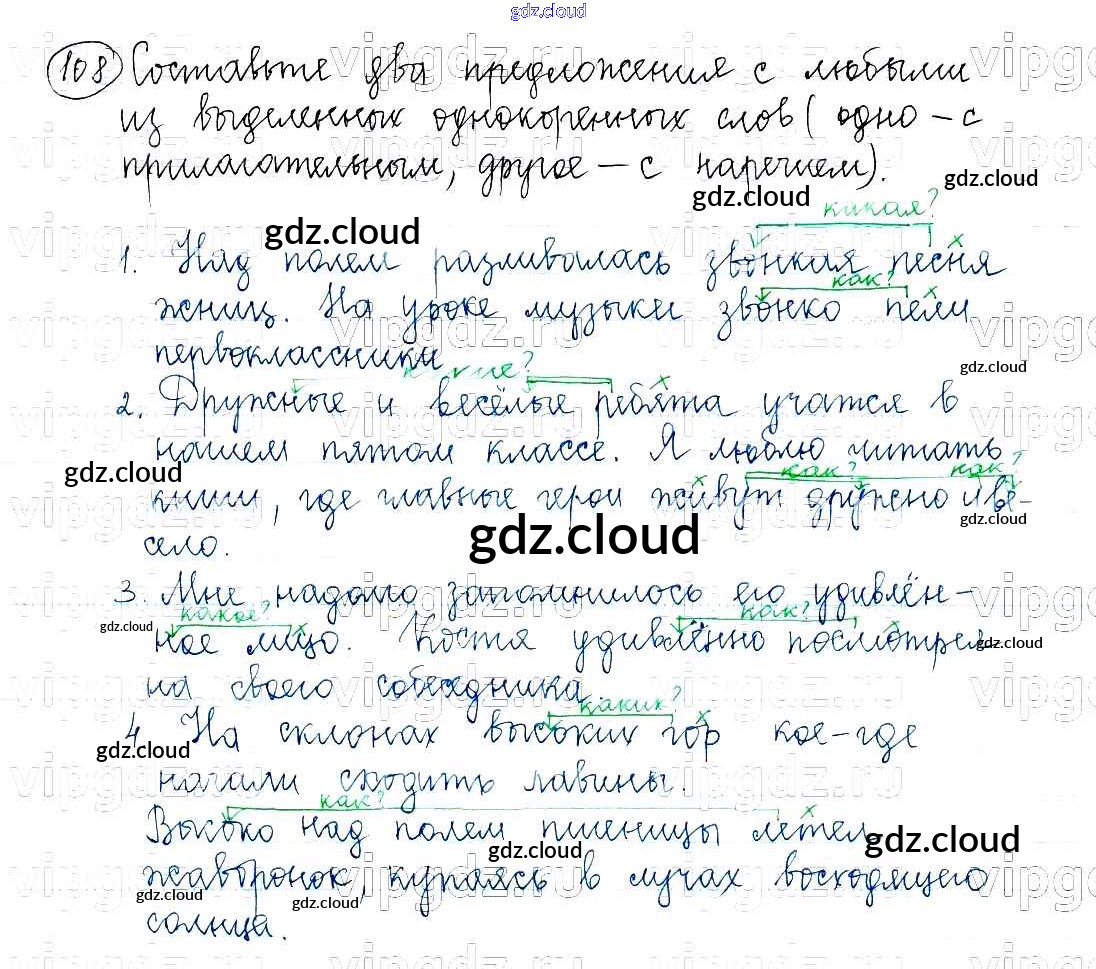 gdz.cloud
108 Составьте два предложения с любыми
из выделенных однокоренных слов (одно – с
прилагательным, другое – с наречием).
gdz.cloud
gdz.cloud
gdz.cloud
какая?
1. Над полем разливалась звонкая песня
как?
жниц. На уроке музыки звонко пели
первоклассники
gdz.cloud
какие?
2. Дружные и весёлые ребята учатся в
нашем пятом классе. Я люблю читать
gdz.cloud
как? как?
книги, где главные герои живут дружно и ве-
gdz.cloud
село.
gdz.cloud
3. Мне надолго запомнилось его удивлён-
gdz.cloud
какое? как?
ное лицо. Костя удивлённо посмотрел
gdz.cloud
на своего собеседника.
каких?
4 На склонах высоких гор кое-где
gdz.cloud
начали сходить лавины.
как?
Высоко над полем пшеницы летел
gdz.cloud
gdz.cloud
жаворонок, купаясь в лучах восходящего
gdz.cloud
gdz.cloud
солнца.